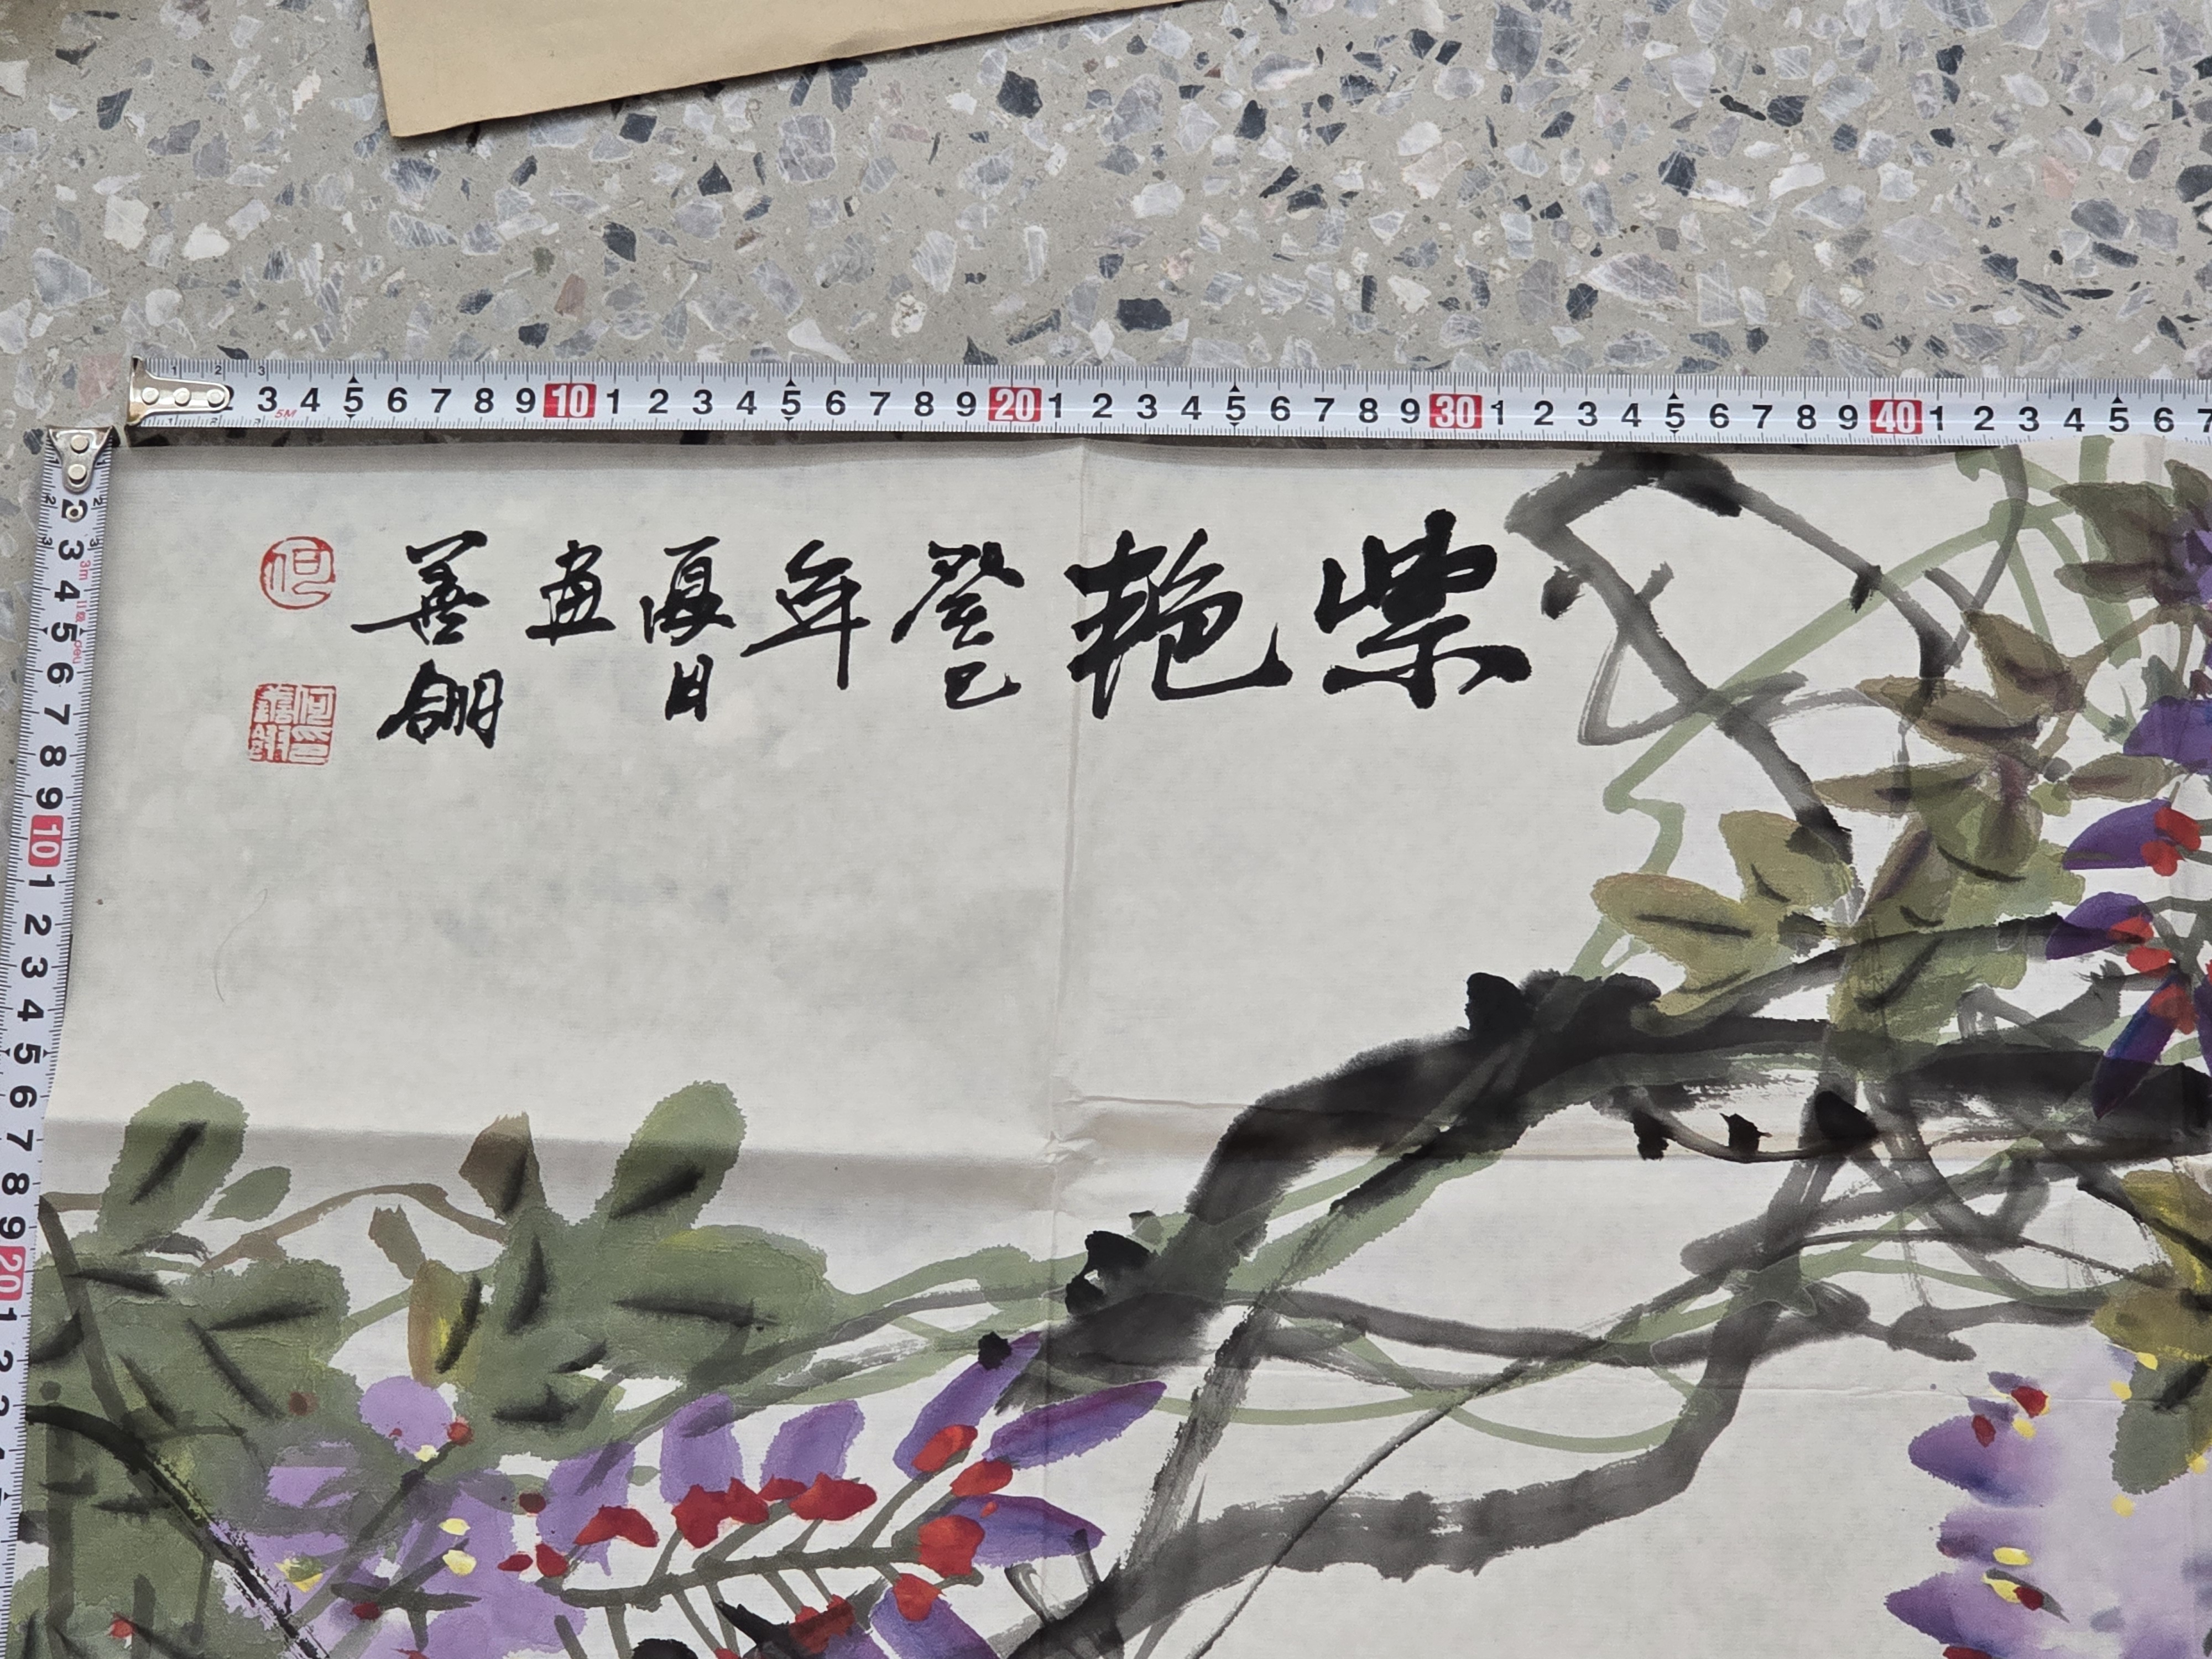 3 4 5 6 7 8 9 10 1 2 3 4 5 6 7 8 9 20 1 2 3 4 5 6 7 8 9 30 1 2 3 4 5 6 7 8 9 40 1 2 3 4 5 6 7
5M
2 3 4 5 6 7 8 9 10 1 2 3 4 5 6 7 8 9 20 1 2 3
3m
紫艳
癸巳年夏日画
善翖
何